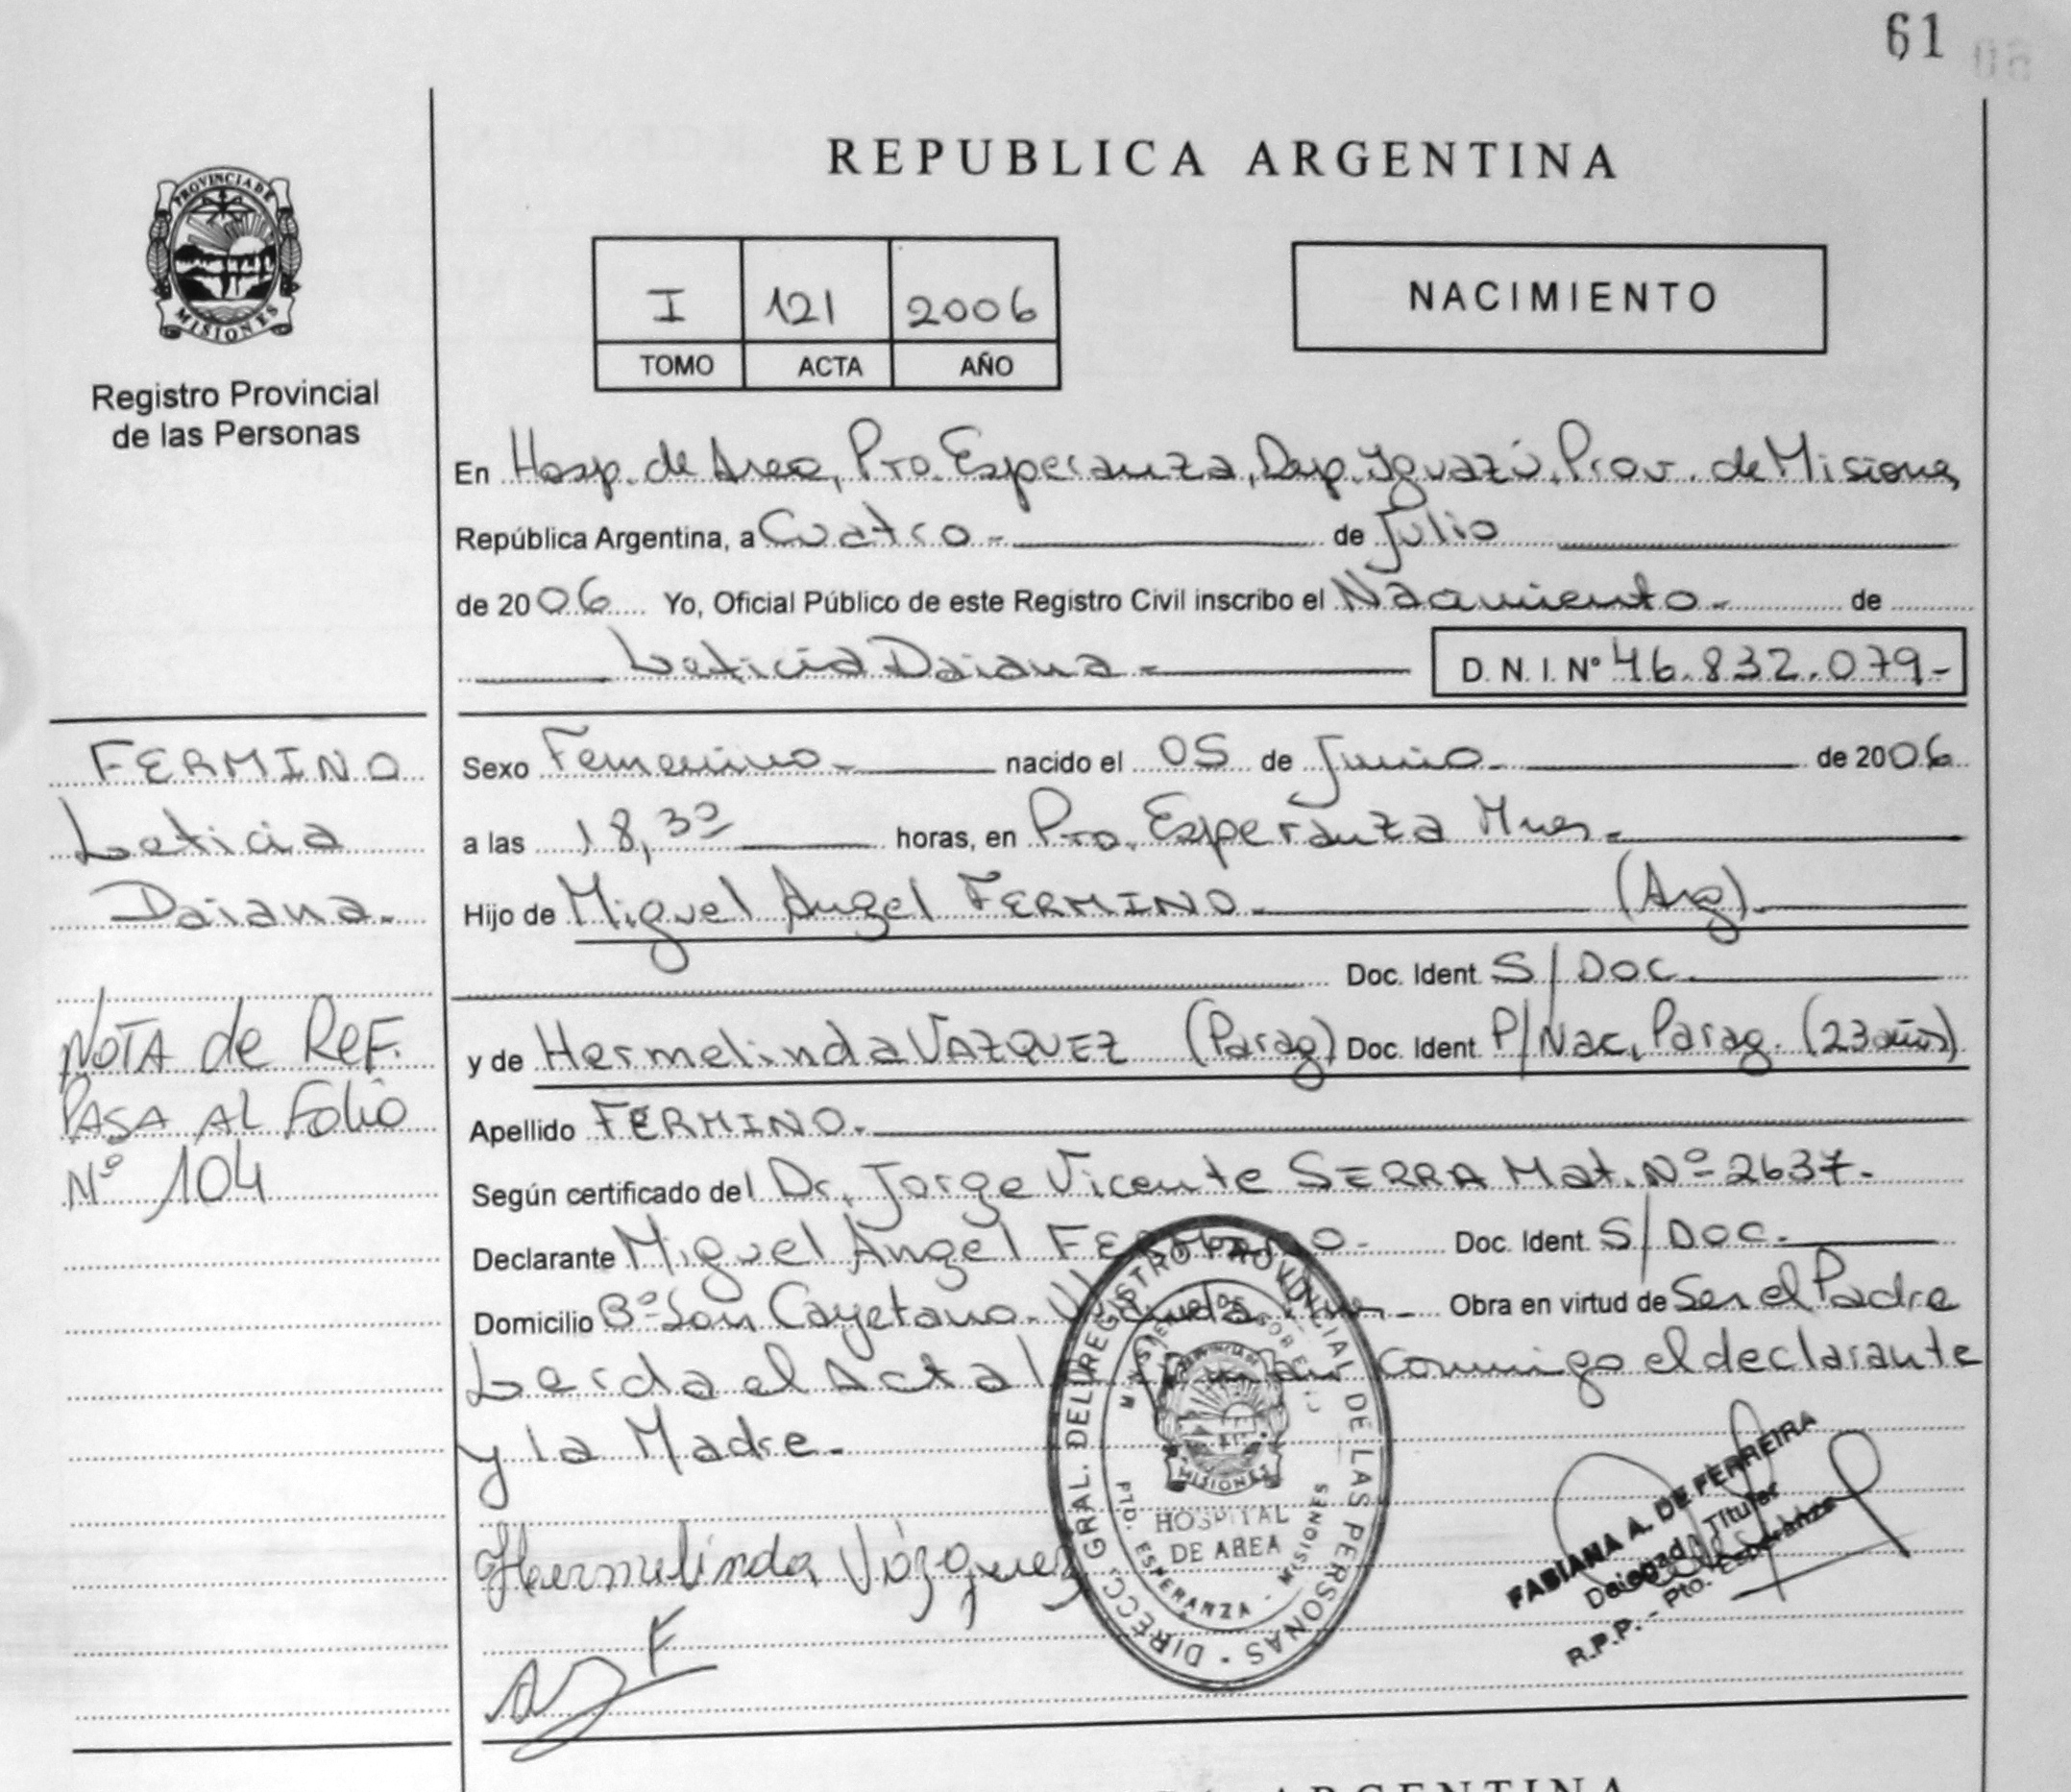 61
REPUBLICA ARGENTINA
PROVINCIA DE
MISIONES
Registro Provincial
de las Personas
I 121 2006
TOMO ACTA AÑO
NACIMIENTO
En Hosp. de Area, Pto. Esperanza, Dep. Iguazú, Prov. de Misiones,
República Argentina, a Cuatro.- de Julio
de 2006 Yo, Oficial Público de este Registro Civil inscribo el Nacimiento.- de
Leticia Daiana.- D. N. I. Nº 46.832.079-
FERMINO
Leticia
Daiana.
NOTA de REF.
PASA AL Folio
Nº 104
Sexo Femenino.- nacido el 05 de Junio.- de 2006
a las 18,30 horas, en Pto. Esperanza Mnes.-
Hijo de Miguel Angel FERMINO.- (Arg).-
Doc. Ident. S/DOC.
y de Hermelinda VAZQUEZ (Parag) Doc. Ident. P/Nac, Parag. (23 años)
Apellido FERMINO.-
Según certificado del Dr. Jorge Vicente SERRA Mat. Nº 2637.-
Declarante Miguel Angel FERMINO.- Doc. Ident. S/DOC.-
Domicilio Bº San Cayetano. Wanda Obra en virtud de Ser el Padre
Leida el Acta conmigo el declarante
y la Madre.-
Hermelinda Vázquez
DIRECC. GRAL. DEL REGISTRO PROVINCIAL DE LAS PERSONAS
MISIONES
HOSPITAL
DE AREA
PTO. ESPERANZA - MISIONES
FABIANA A. DE FERREIRA
Delegada Titular
R.P.P. - Pto. Esperanza
ARGENTINA